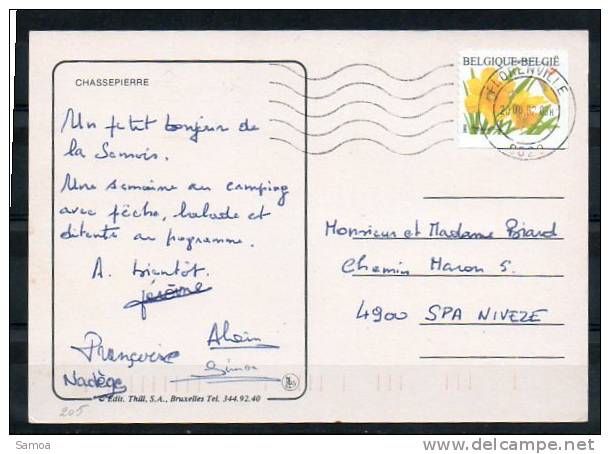 CHASSEPIERRE
Un petit bonjour de
la Semois.
Une semaine au camping
avec pêche, balade et
détente au programme.
A bientôt.
Jérôme
Françoise
Alain
Simon
Nadège
© Edit. Thill, S.A., Bruxelles Tel. 344.92.40
205
BELGIQUE-BELGIË
FLORENVILLE
6820
Monsieur et Madame Biard
Chemin Maron 5.
4900 SPA NIVEZE
Samoa
www.delcampe.net